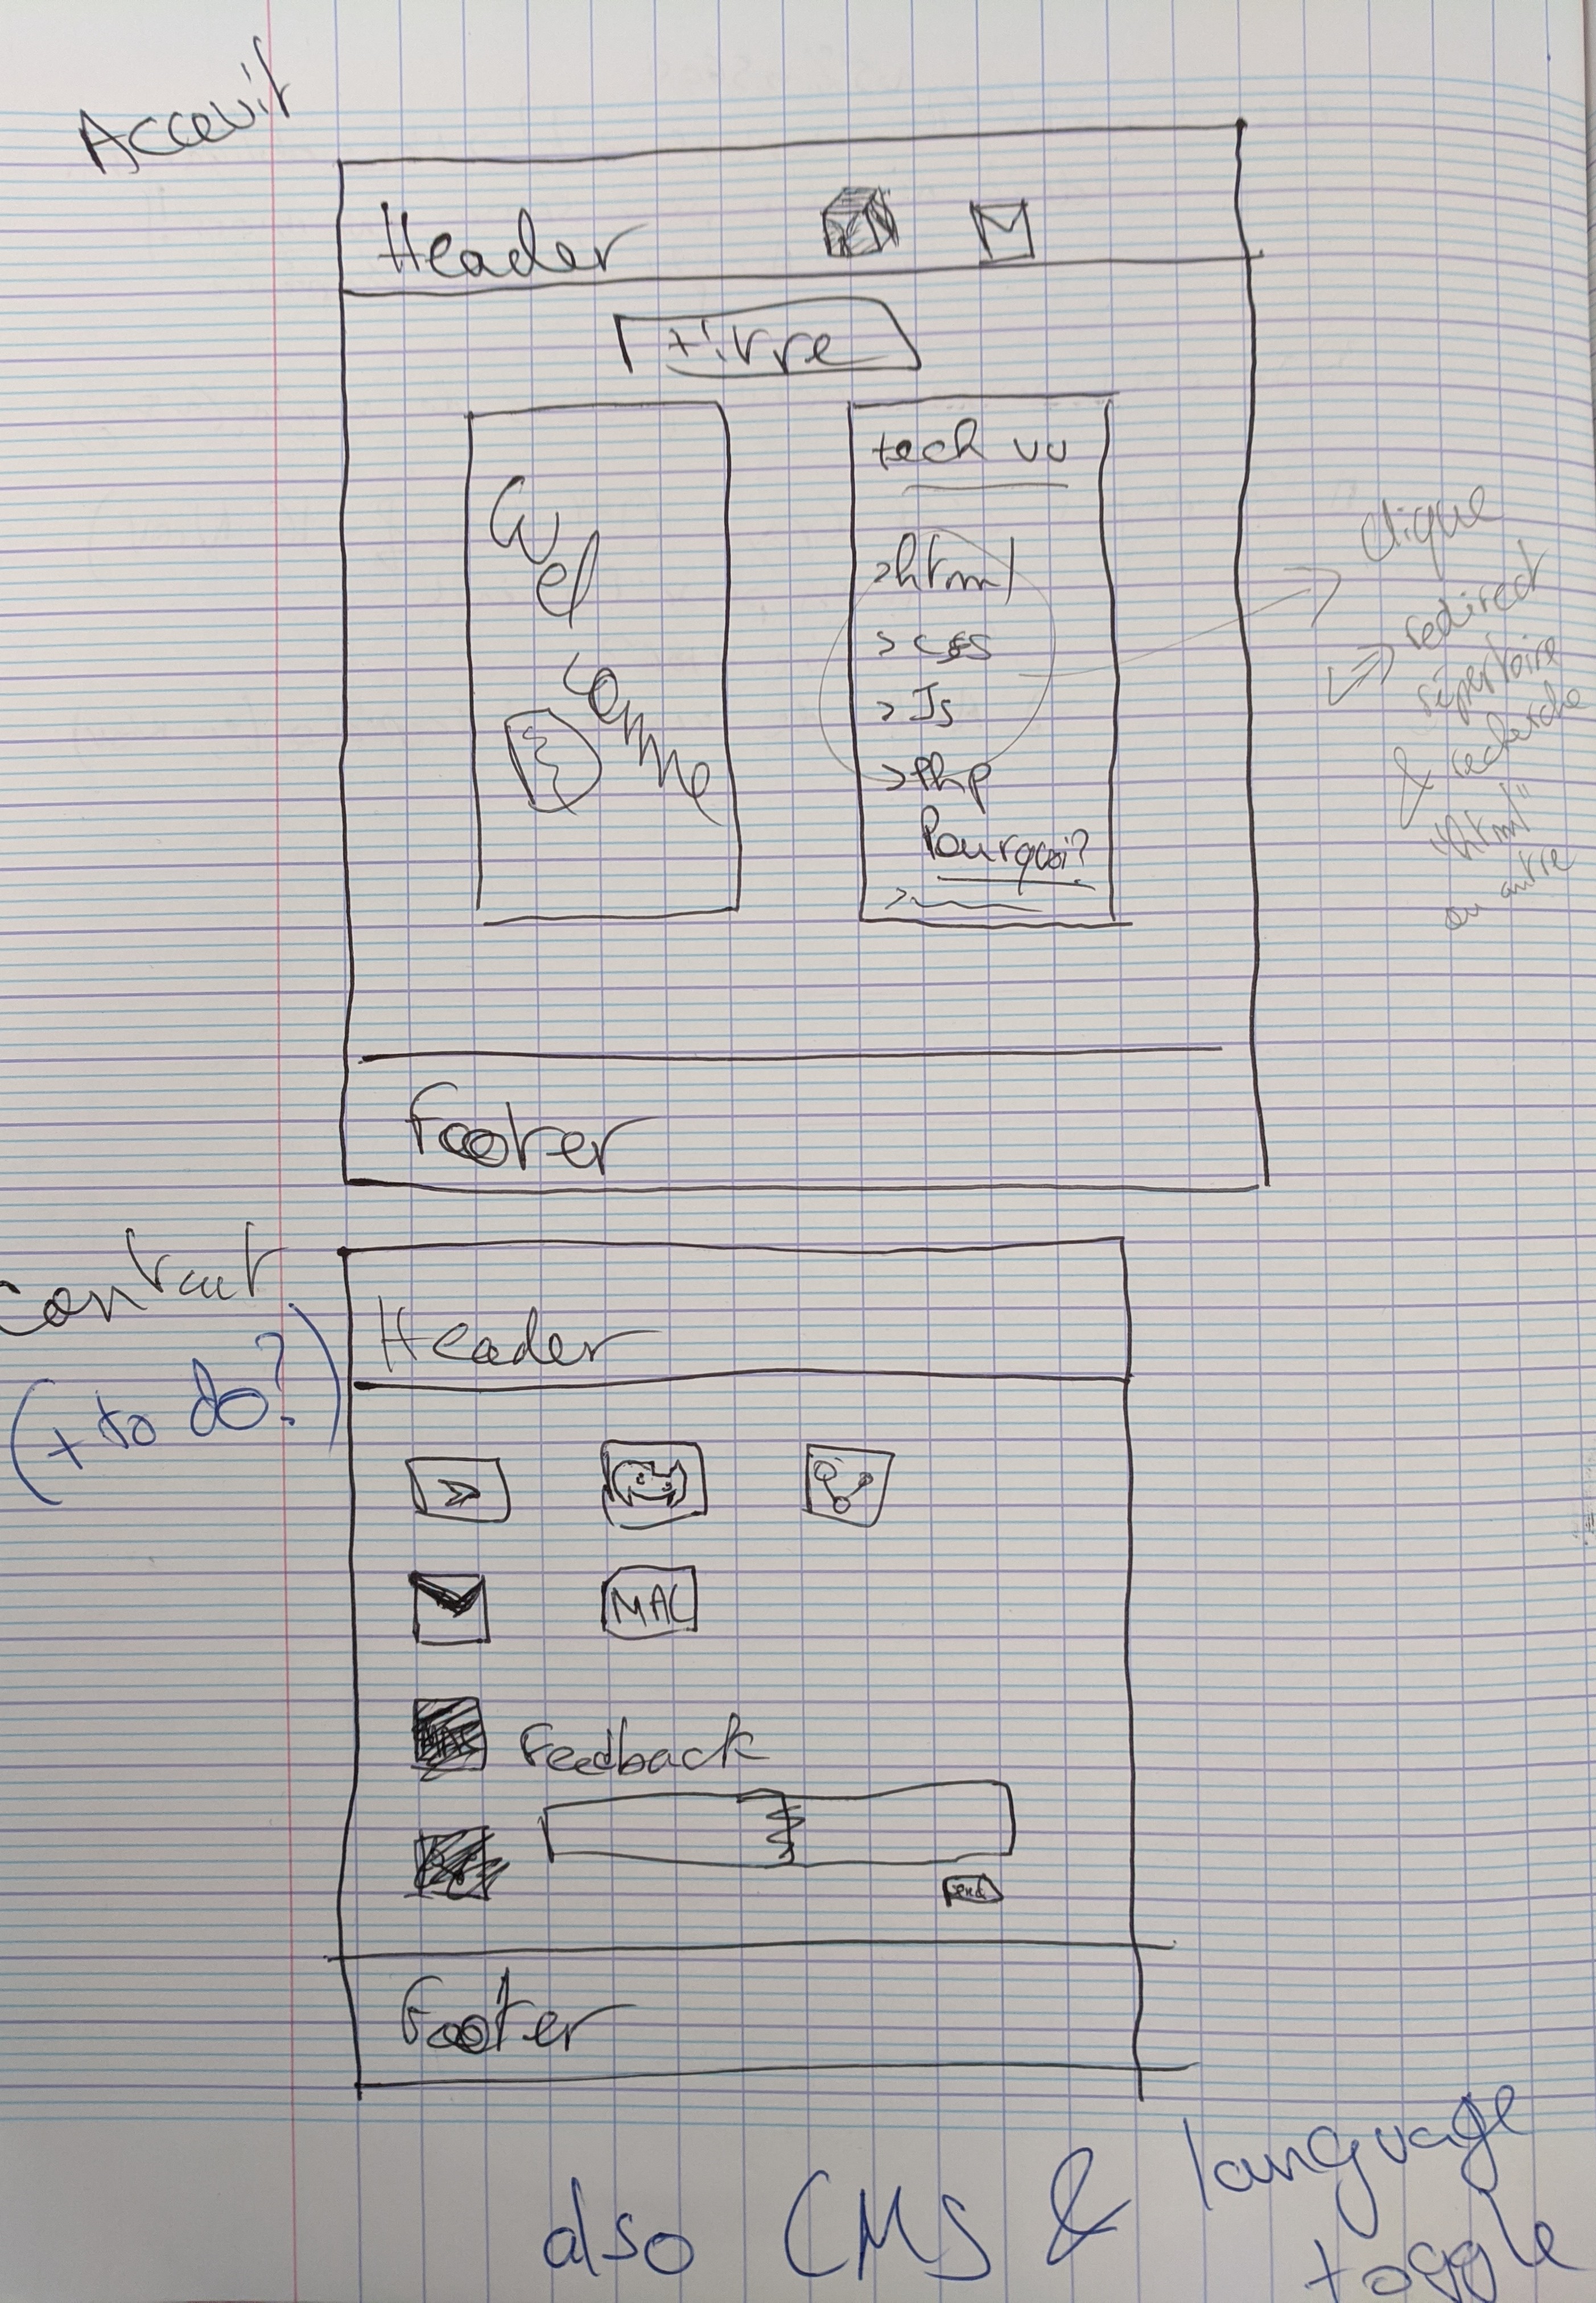 Acceuil
Header
titre
Wel
comme
tech vu
>html
> css
> Js
>Php
Pourquoi?
>
clique
=> redirect
répertoire
& recherche
"html"
ou autre
Footer
Contact
(+ to do?)
Header
>
MAC
Feedback
Send
Footer
also CMS & language
toggle